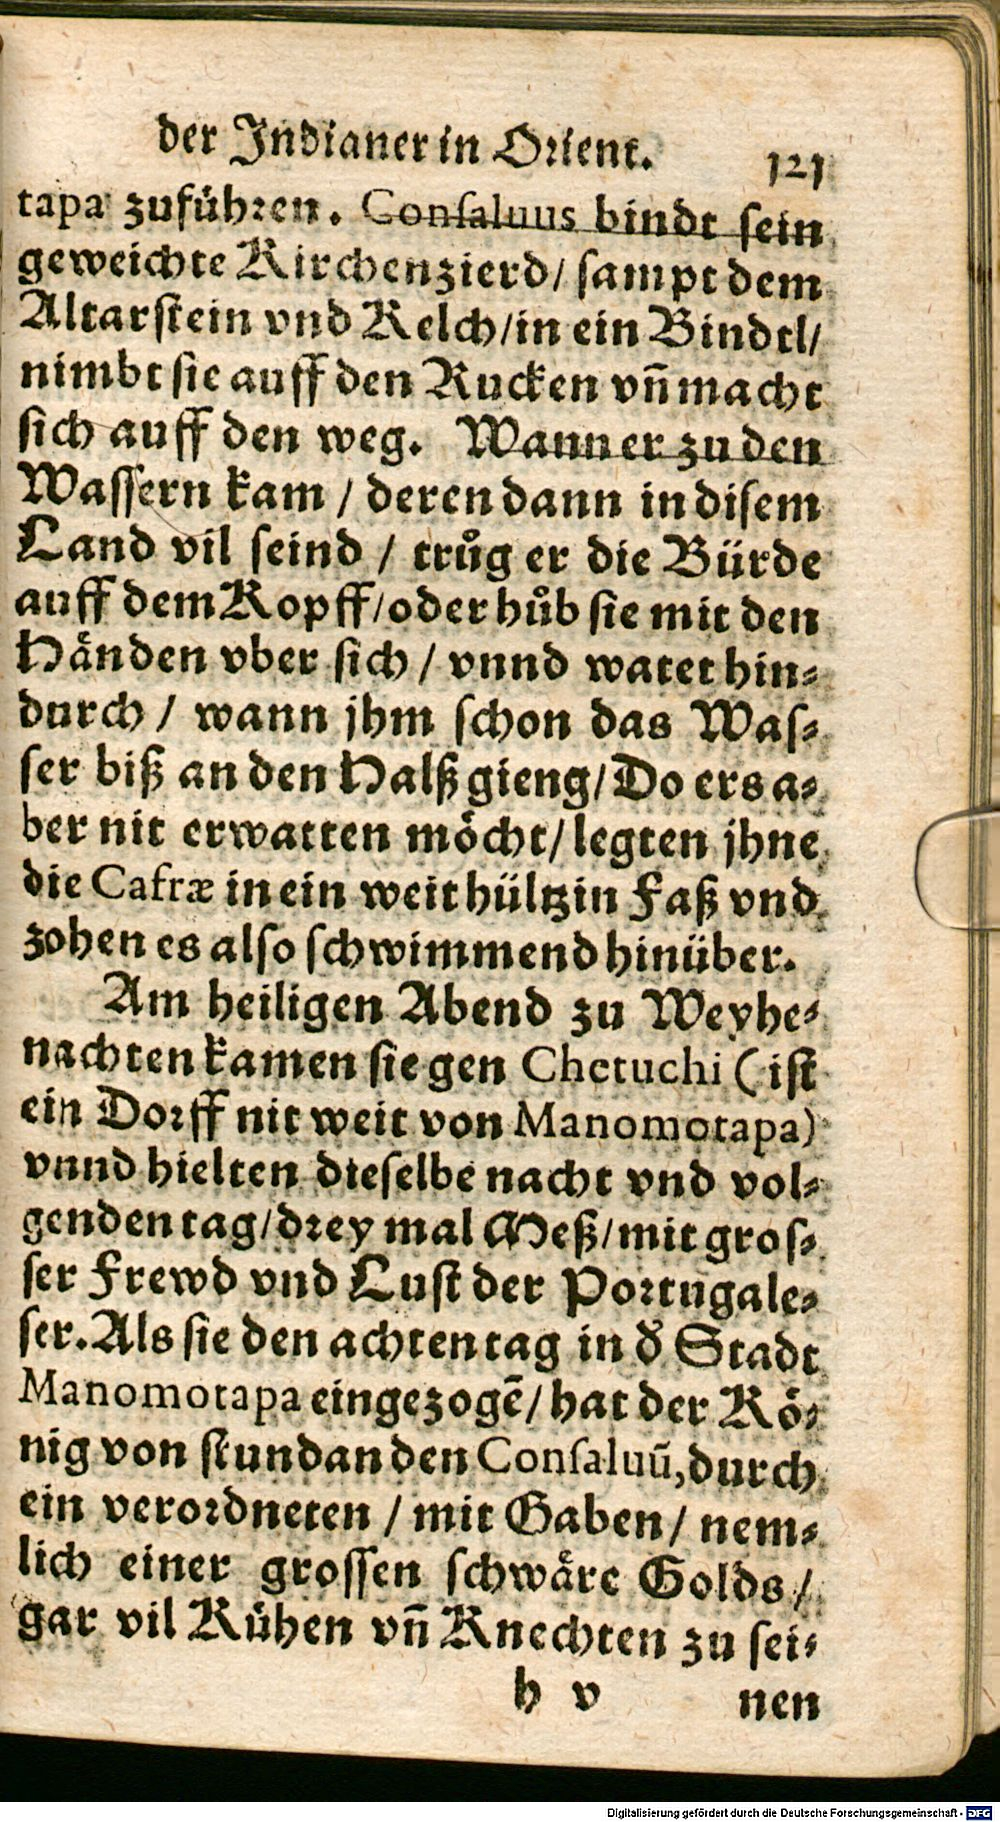 der Indianer in Orient. 121
tapa zuführen. Consaluus bindt sein
geweichte Kirchenzierd/ sampt dem
Altarstein vnd Kelch/in ein Bindtl/
nimbt sie auff den Rucken vñ macht
sich auff den weg. Wann er zu den
Wassern kam / deren dann in disem
Land vil seind / trůg er die Bürde
auff dem Kopff/oder hůb sie mit den
Händen vber sich / vnnd watet hin⸗
durch / wann jhm schon das Was⸗
ser biß an den Halß gieng/Do ers a⸗
ber nit erwatten möcht/legten jhne
die Cafræ in ein weit hültzin Faß vnd
zohen es also schwimmend hinüber.
Am heiligen Abend zu Weyhe⸗
nachten kamen sie gen Chetuchi (ist
ein Dorff nit weit von Manomotapa)
vnnd hielten dieselbe nacht vnd vol⸗
genden tag/drey mal Meß/mit gros⸗
ser Frewd vnd Lust der Portugale⸗
ser. Als sie den achten tag in d̕ Stadt
Manomotapa eingezogẽ/ hat der Kö⸗
nig von stundan den Consaluũ,durch
ein verordneten / mit Gaben/ nem⸗
lich einer grossen schwäre Golds/
gar vil Kühen vñ Knechten zu sei⸗
h v nen
Digitalisierung gefördert durch die Deutsche Forschungsgemeinschaft - DFG